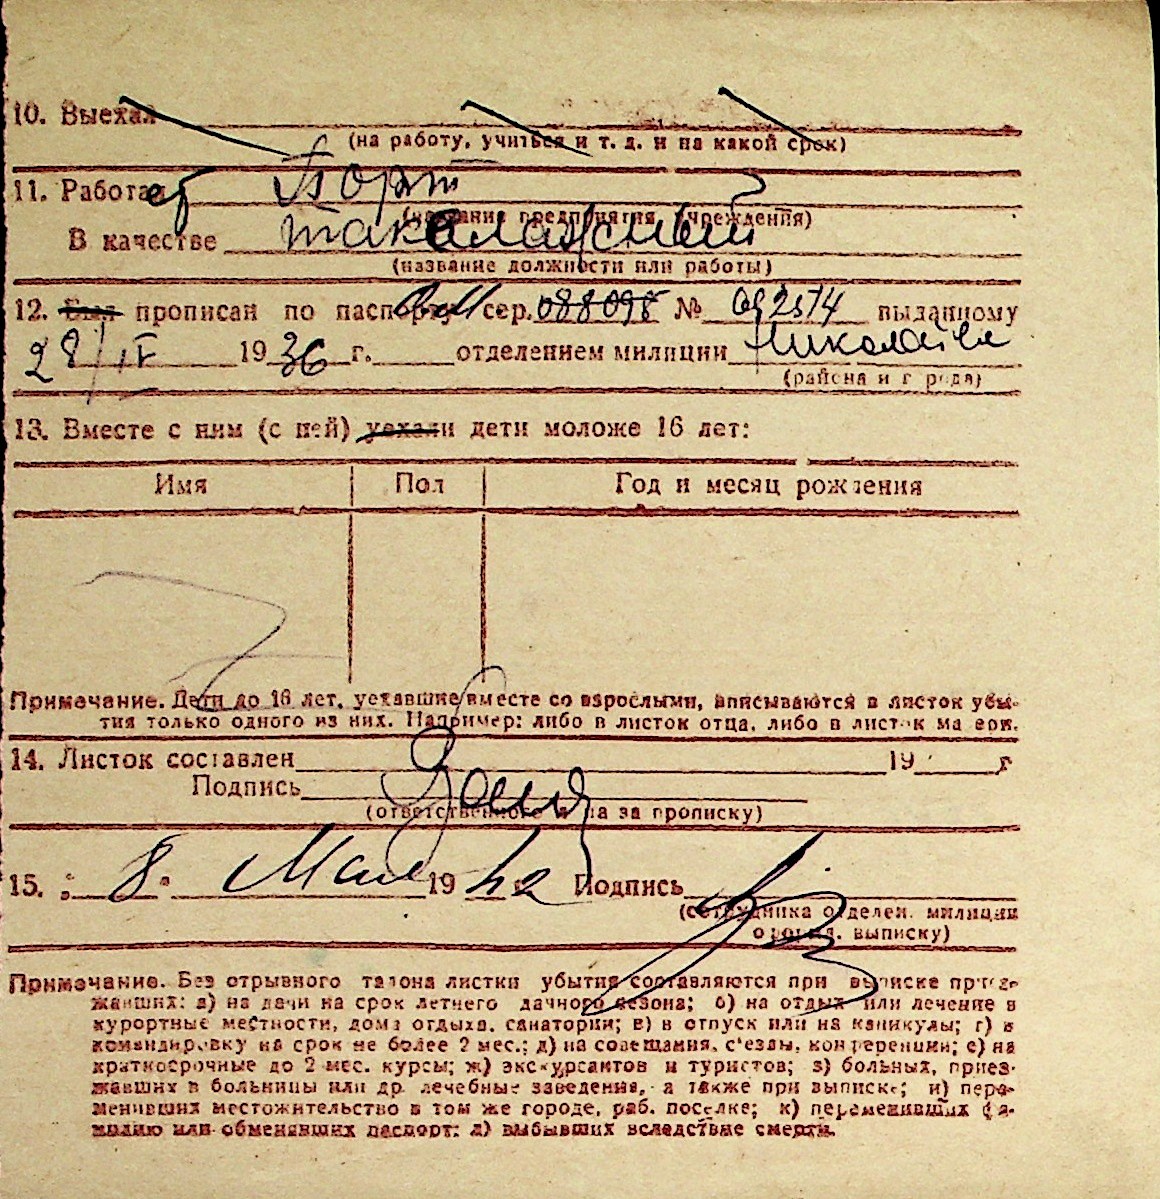 10. Выехал
(на работу, учиться и т. д. и на какой срок)
11. Работает Порт
(название предприятия, учреждения)
В качестве такелажный
(название должности или работы)
12. Был прописан по паспорту сер. 088098 № 092514 выданному
28/IV 1936 г. отделением милиции
(района и города)
13. Вместе с ним (с ней) уехали дети моложе 16 лет:
Имя Пол Год и месяц рождения
Примечание. Дети до 16 лет, уехавшие вместе со взрослыми, вписываются в листок убы-
тия только одного из них. Например: либо в листок отца, либо в листок матери.
14. Листок составлен 19 г
Подпись
(ответственного лица за прописку)
15. 8 Мая 1942 Подпись
(сотрудника отделен. милиции
оформл. выписку)
Примечание. Без отрывного талона листки убытия составляются при выписке приез-
жавших: а) на дачи на срок летнего дачного сезона; б) на отдых или лечение в
курортные местности, дома отдыха, санатории; в) в отпуск или на каникулы; г) в
командировку на срок не более 2 мес.; д) на совещания, с'езды, конференции; е) на
краткосрочные до 2 мес. курсы; ж) экскурсантов и туристов; з) больных, приез-
жавших в больницы или др. лечебные заведения, а также при выписке; и) пере-
менивших местожительство в том же городе, раб. поселке; к) переменивших фа-
милию или обменявших паспорт; л) выбывших вследствие смерти.